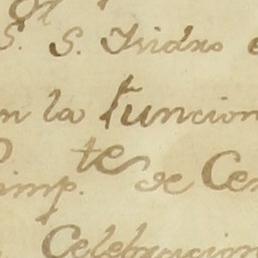 S. S. Ysidro
n la funcion
imp.te de Ce
Celebracion